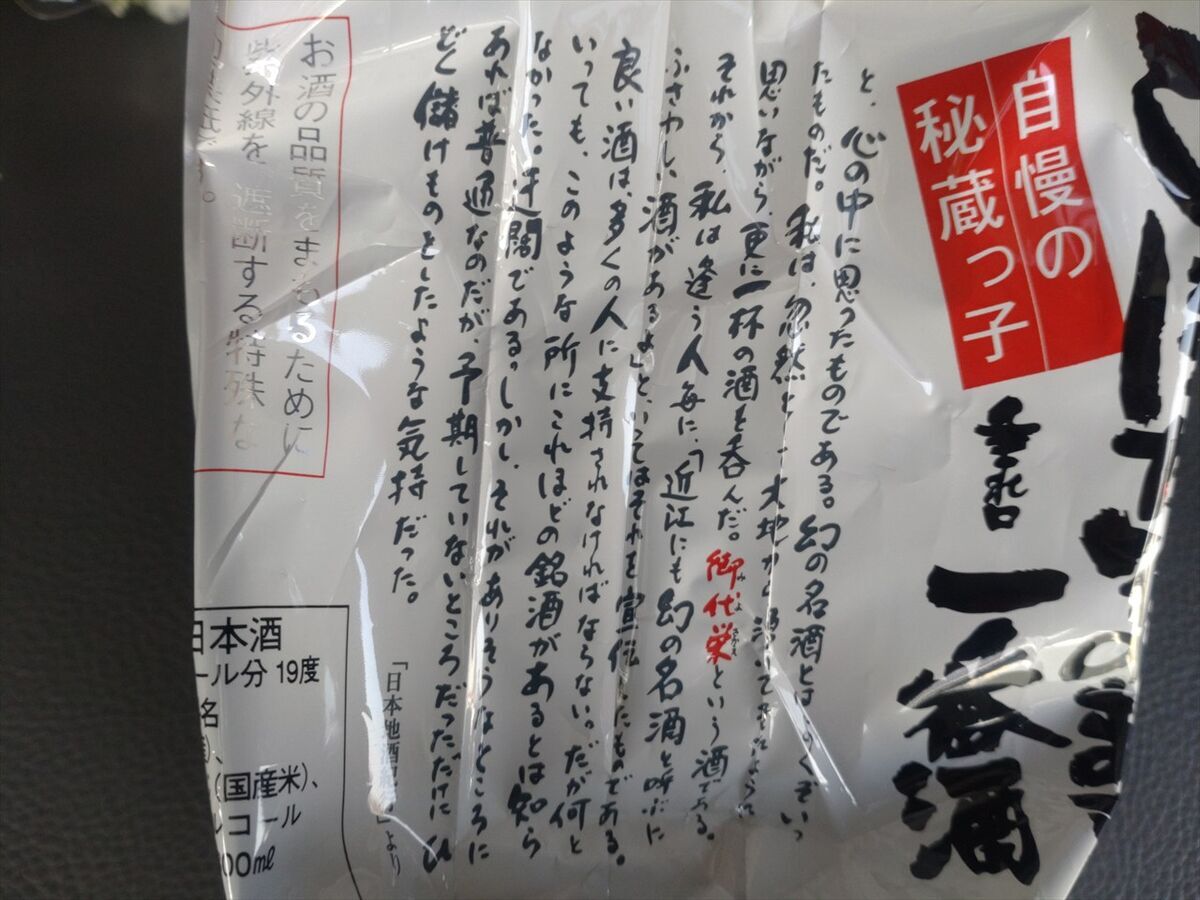 自慢の
秘蔵っ子
一番酒
と、心の中に思ったものである。幻の名酒とは
たものだ。私は、忽然と
思いながら、更に一杯の酒を呑んだ。御代栄という酒である。
みよさかえ
それから、私は逢う人毎に、「近江にも幻の名酒と呼ぶに
ふさわしい酒があるよ」といってはそれを宣伝したものである。
良い酒は、多くの人に支持されなければならない。だが何と
いっても、このような所にこれほどの銘酒があるとは知ら
なかった。迂闊である。しかし、それがありそうなところに
あれば普通なのだが、予期していないところだっただけに ひ
どく儲けものとしたような気持だった。
「日本地酒
」より
お酒の品質をまもるために
紫外線を遮断する特殊な
す。
日本酒
ール分 19度
名
(国産米)、
コール
00ml